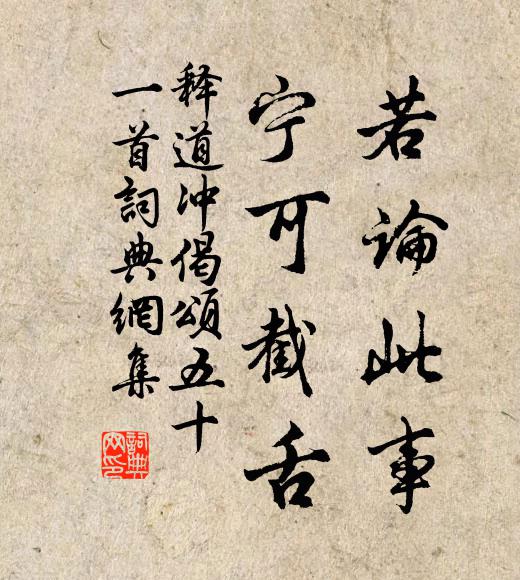 若論此事
宁可截舌
释道冲偈頌五十
一首詞典網集
詞典
网印